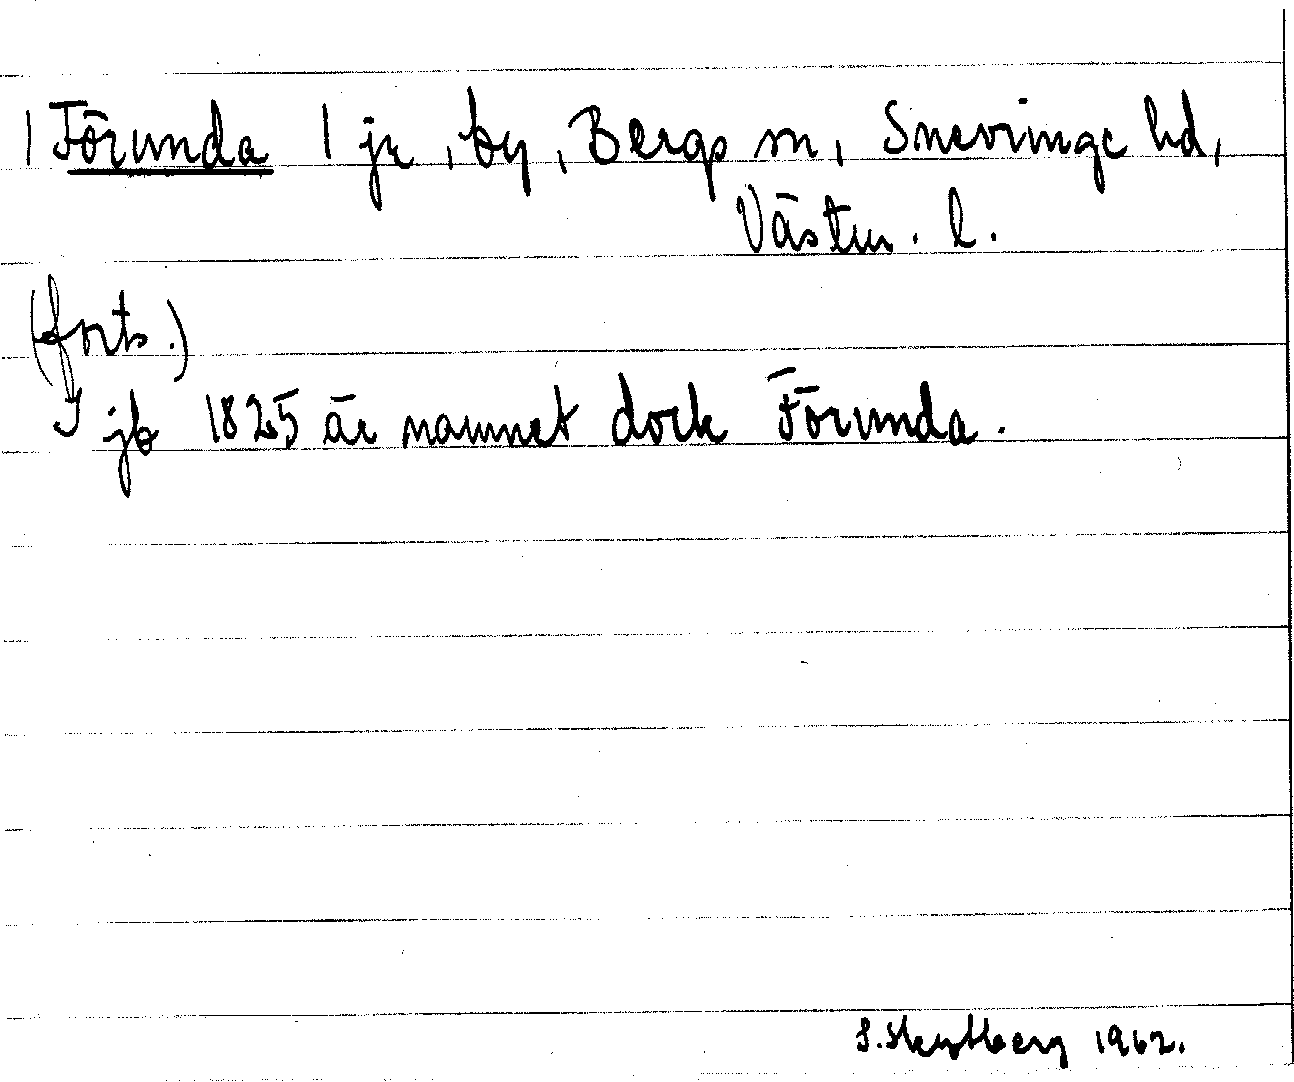 | Förunda | ju, by, Bergs sn, Snevringe hd,
Västm. l.
(forts.)
I jb 1825 är namnet dock Förunda.
1962.